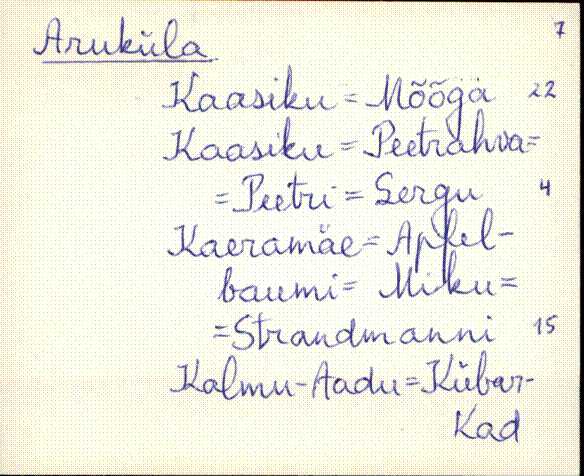 7
Aruküla
Kaasiku = Mõõga 22
Kaasiku = Peetrahva=
=Peetri = Sergu 4
Kaeramäe = Apfel-
baumi = Miku =
=Strandmanni 15
Kalmu-Aadu = Kübar-
kad